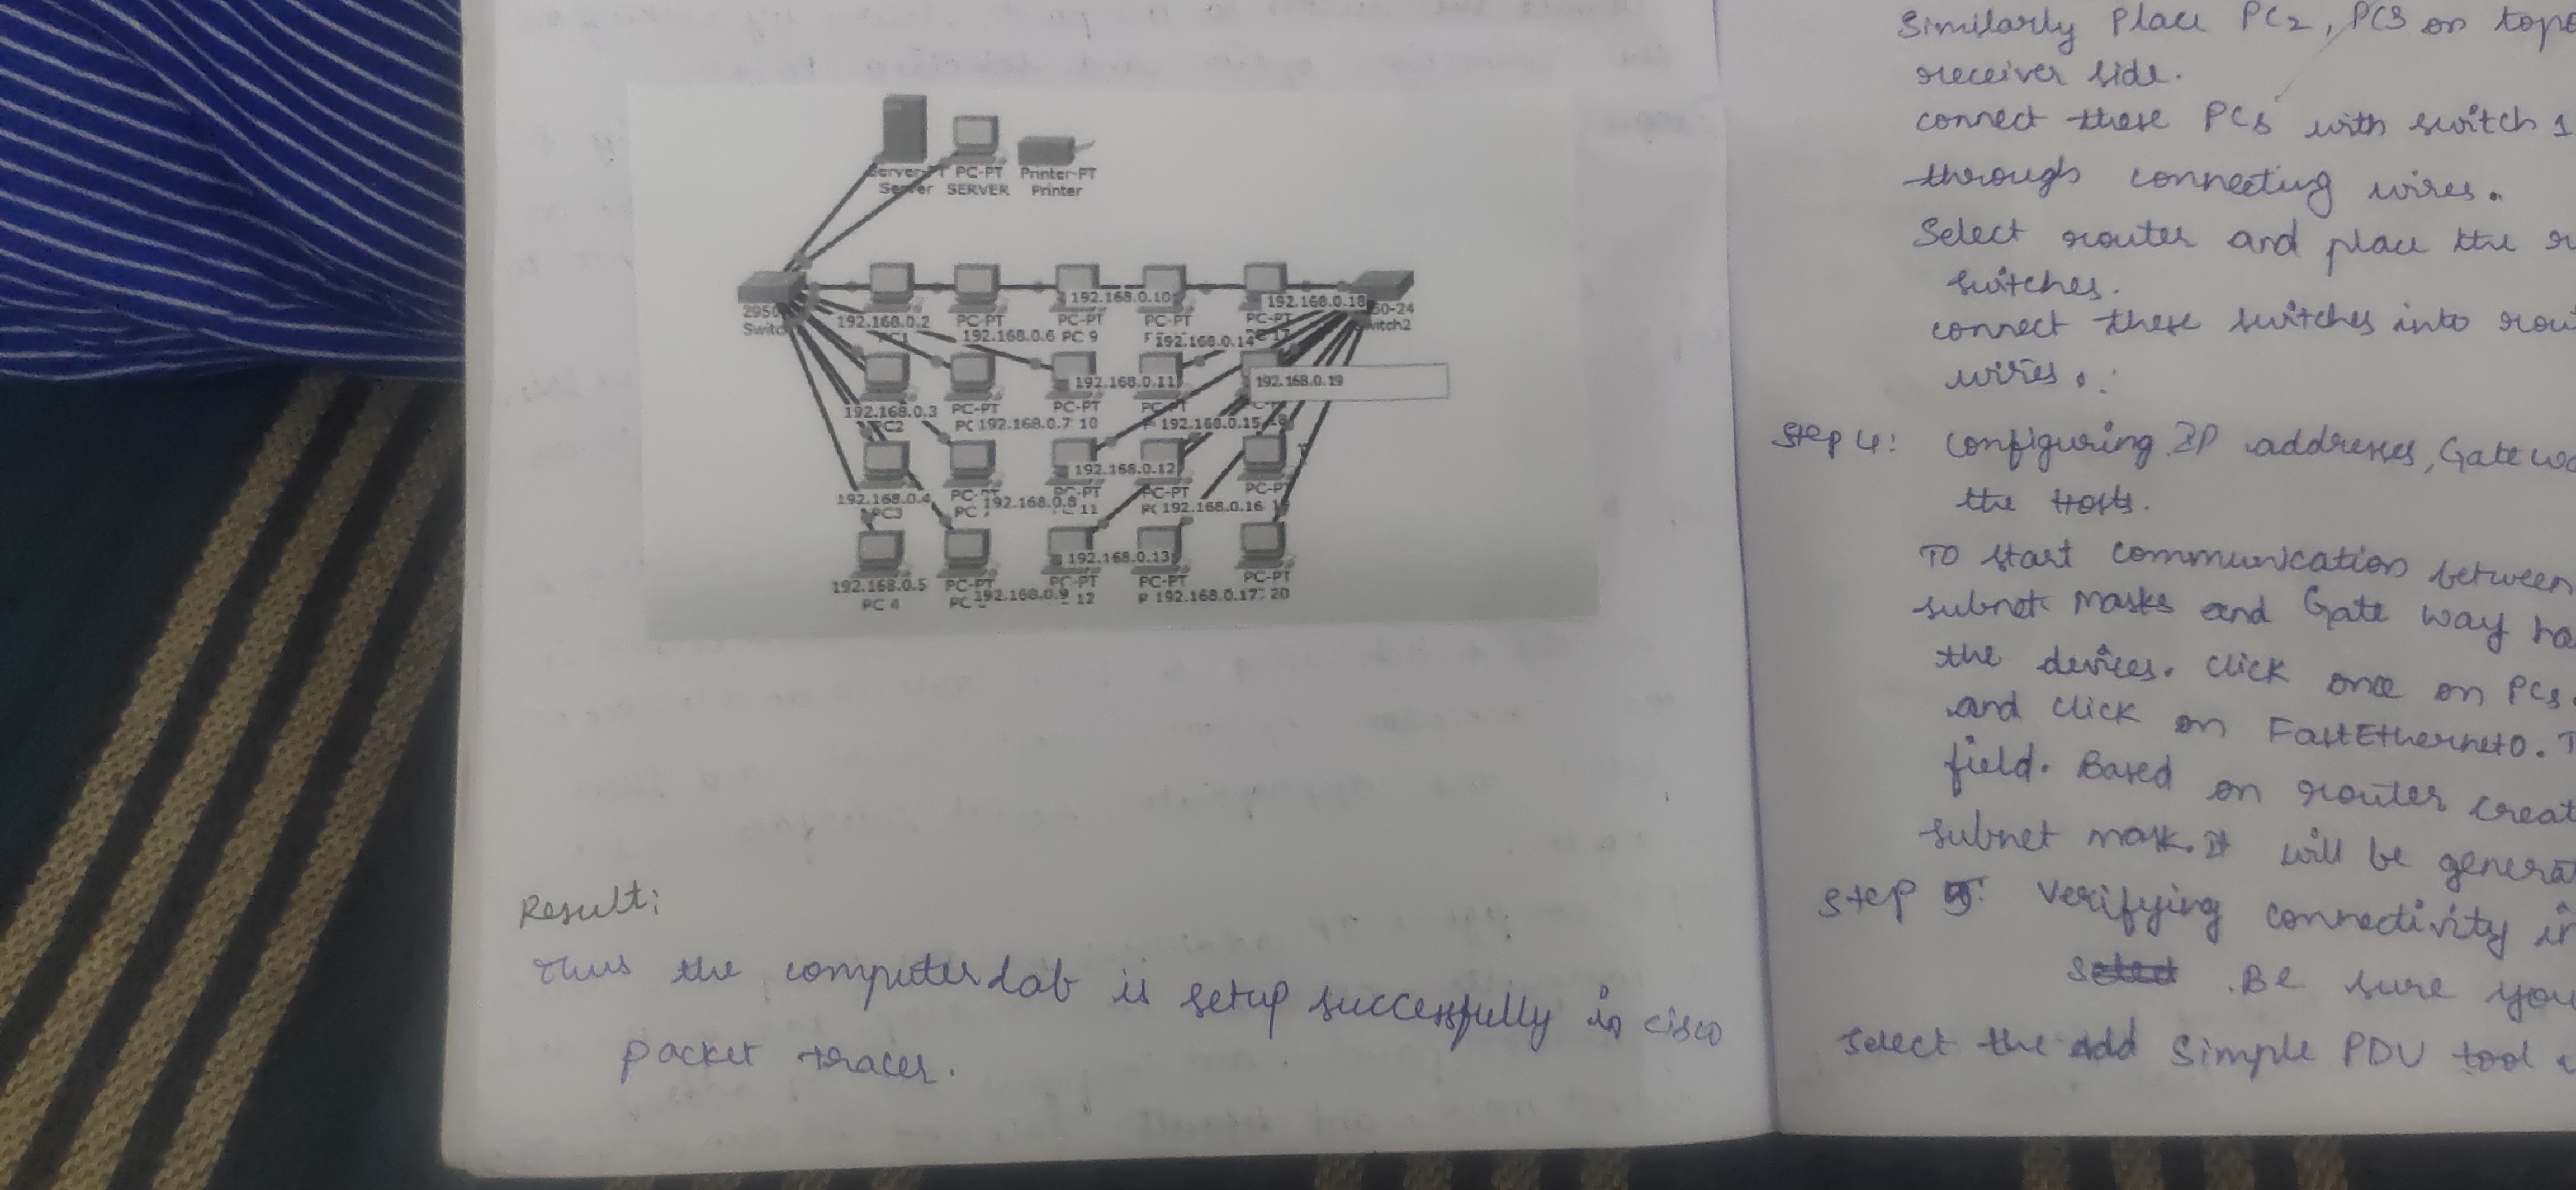 Server PC-PT Printer-PT
Server SERVER Printer
2950
Switc
192.168.0.2
PC1
PC-PT
192.168.0.6
192.168.0.10
PC-PT
PC 9
PC-PT
192.168.0.14
192.168.0.18
PC-PT
50-24
witch2
192.168.0.3
PC2
PC-PT
192.168.0.7
192.168.0.11
PC-PT
10
192.168.0.15
192.168.0.19
192.168.0.4
PC3
192.168.0.8
192.168.0.12
11
PC-PT
192.168.0.16
PC-PT
192.168.0.5
PC 4
PC-PT
192.168.0.9
192.168.0.13
PC-PT
12
PC-PT
192.168.0.17
PC-PT
20
Result:
Thus the computer lab is setup successfully in cisco
packet tracer.
Similarly Place PC2, PC3 on topo
receiver side.
connect these PCs with switch 1
through connecting wires.
Select router and place the r
switches.
connect these switches into rou
wires.
Step 4: Configuring IP addresses, Gatewa
the Hosts.
To start communication between
subnet Masks and Gate way ha
the devices. Click once on PCs.
and click on FastEthernet0. T
field. Based on router creat
subnet mask. It will be generat
Step 5: Verifying connectivity in
Be sure you
Select the add Simple PDU tool